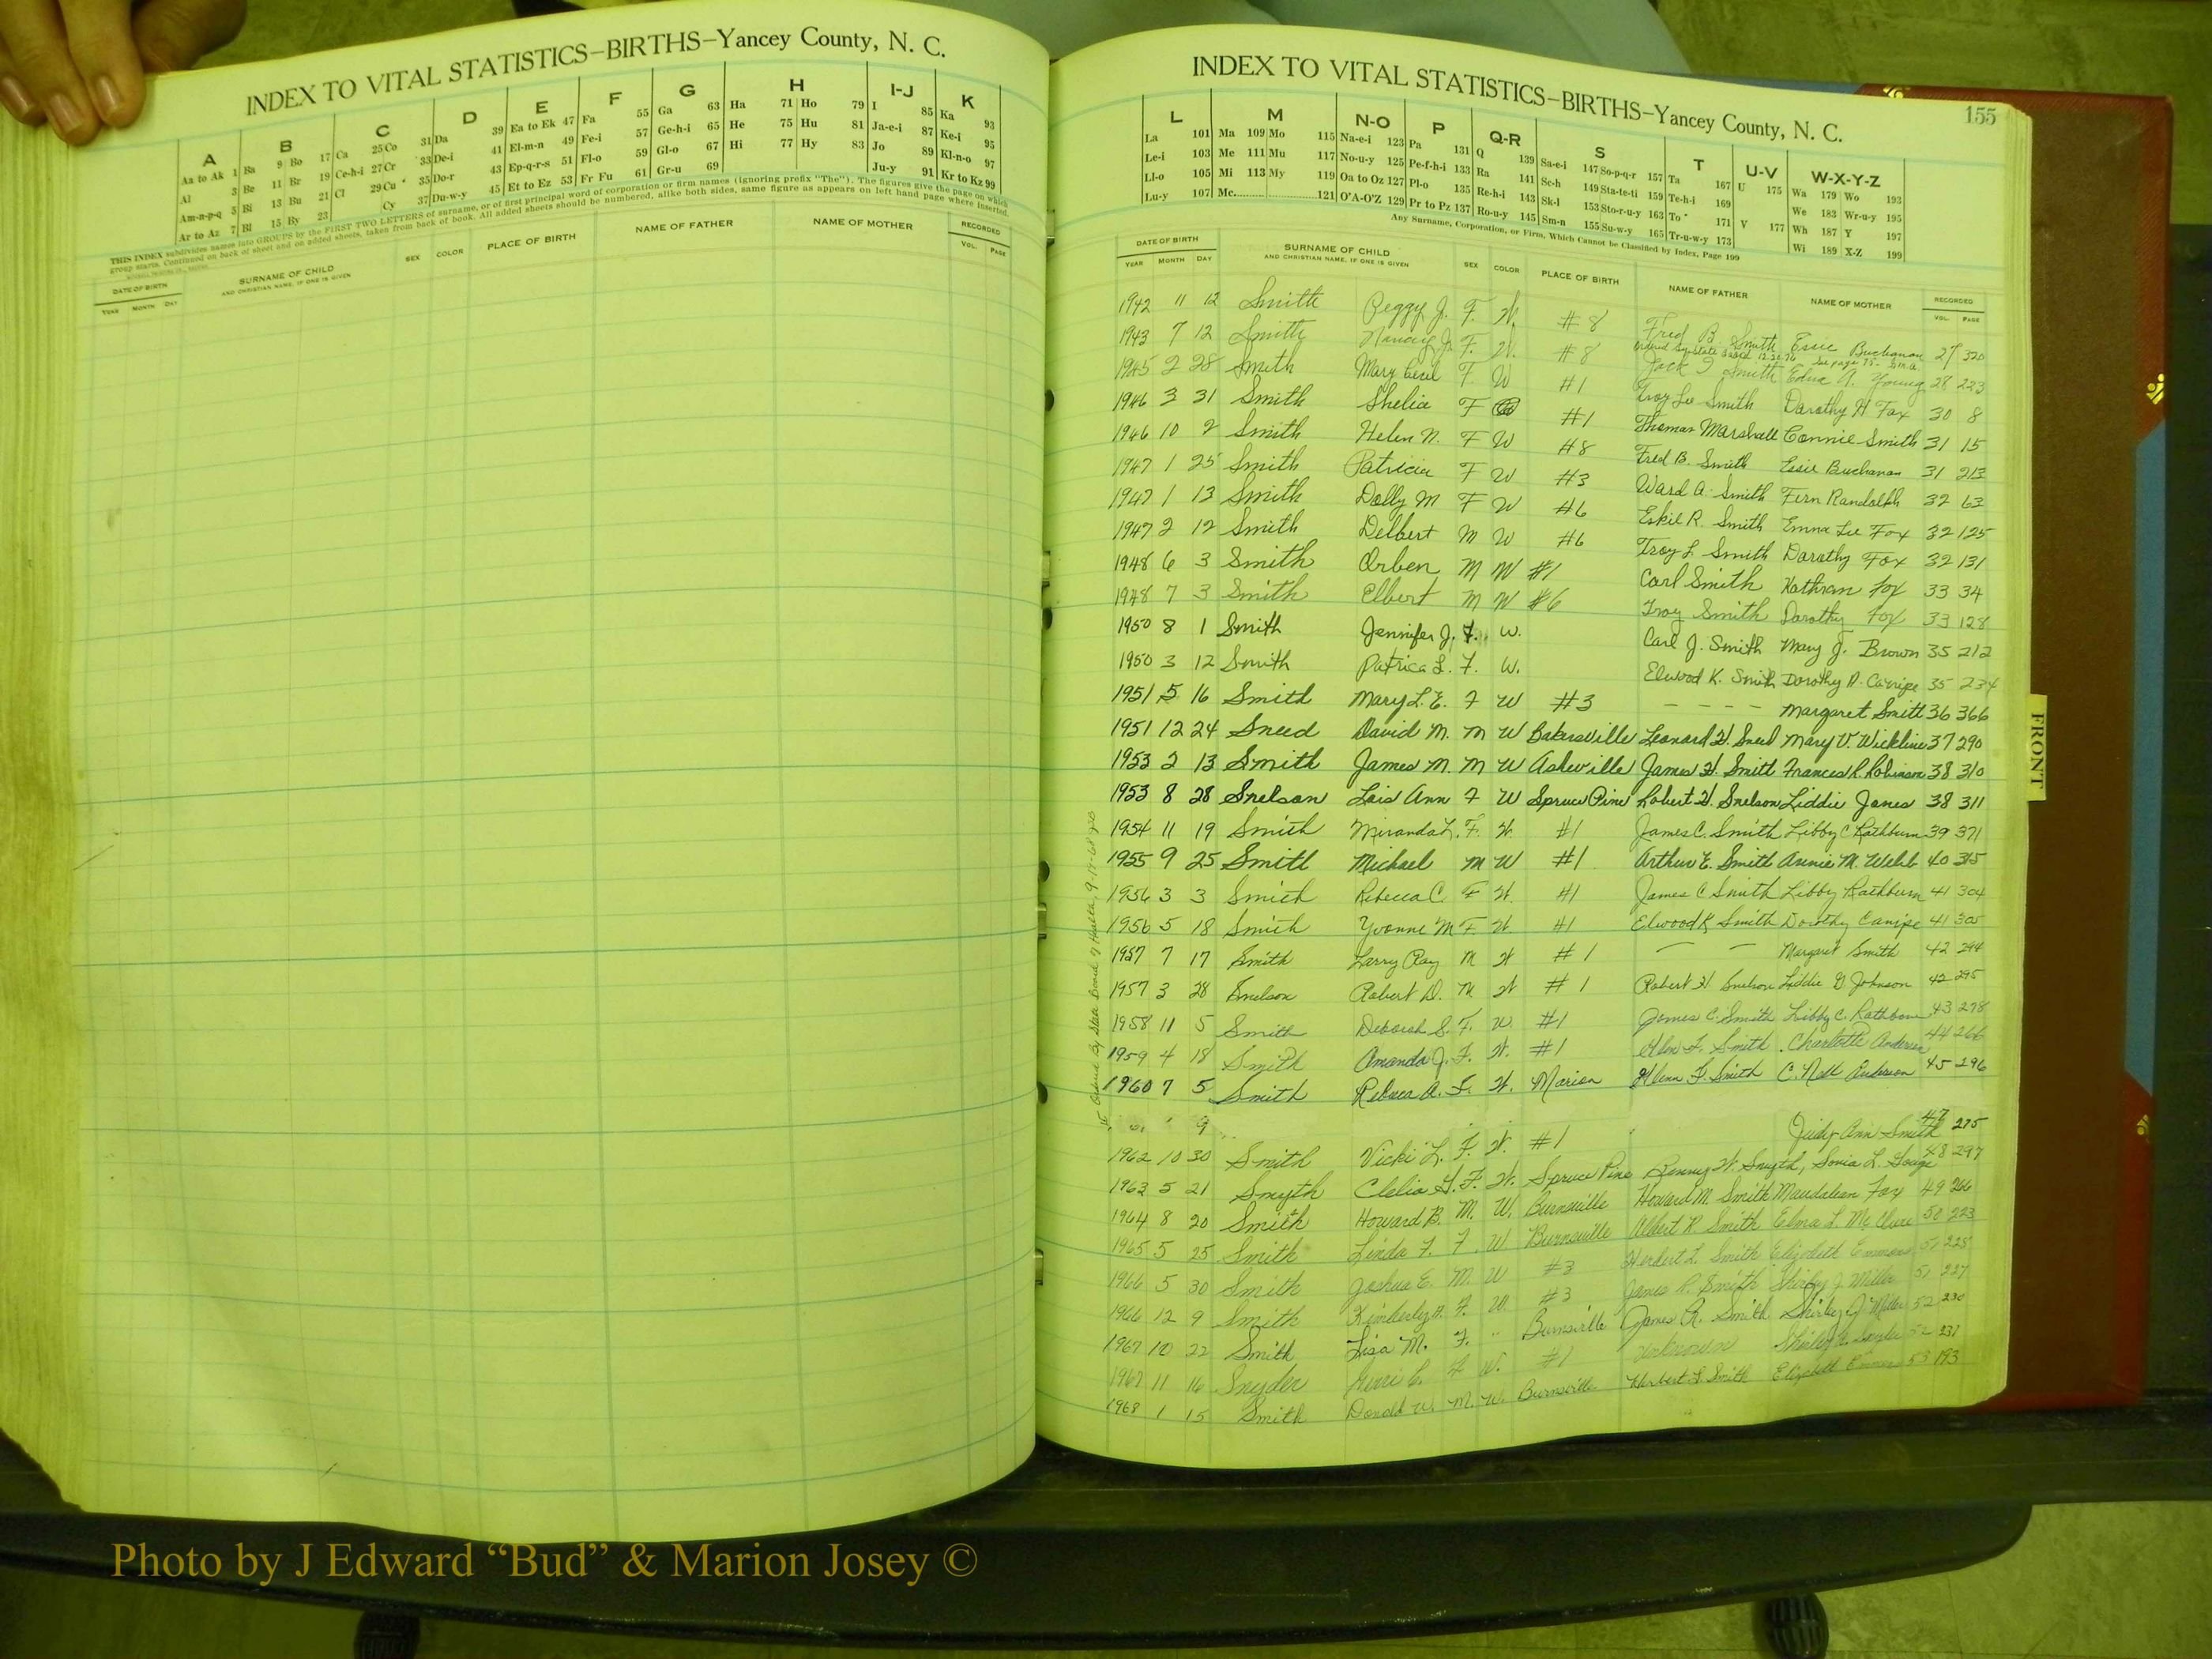 INDEX TO VITAL STATISTICS—BIRTHS—Yancey County, N. C.
A B C D E F G H I-J K
Aa to Ak 1 Ba 9 Bo 17 Ca 25 Co 31 Da 39 Ea to Ek 47 Fa 55 Ga 63 Ha 71 Ho 79 I 85 Ka 93
Al 3 Be 11 Br 19 Ce-h-i 27 Cr 33 De-i 41 El-m-n 49 Fe-i 57 Ge-h-i 65 He 75 Hu 81 Ja-e-i 87 Ke-i 95
Am-n-p-q 5 Bi 13 Bu 21 Cl 29 Cu 35 Do-r 43 Ep-q-r-s 51 Fl-o 59 Gl-o 67 Hi 77 Hy 83 Jo 89 Kl-n-o 97
Ar to Az 7 Bl 15 By 23 Cy 37 Du-w-y 45 Et to Ez 53 Fr Fu 61 Gr-u 69 Ju-y 91 Kr to Kz 99
THIS INDEX subdivides names into GROUPS by the FIRST TWO LETTERS of surname, or of first principal word of corporation or firm names (ignoring prefix "The"). The figures give the page on which
group starts. Continued on back of sheet and on added sheets, taken from back of book. All added sheets should be numbered, alike both sides, same figure as appears on left hand page where inserted.
DATE OF BIRTH SURNAME OF CHILD SEX COLOR PLACE OF BIRTH NAME OF FATHER NAME OF MOTHER RECORDED
YEAR MONTH DAY AND CHRISTIAN NAME, IF ONE IS GIVEN VOL. PAGE
INDEX TO VITAL STATISTICS—BIRTHS—Yancey County, N. C.
155
L M N-O P Q-R S T U-V W-X-Y-Z
La 101 Ma 109 Mo 115 Na-e-i 123 Pa 131 Q 139 Sa-e-i 147 So-p-q-r 157 Ta 167 U 175 Wa 179 Wo 193
Le-i 103 Me 111 Mu 117 No-u-y 125 Pe-f-h-i 133 Ra 141 Sc-h 149 Sta-te-ti 159 Te-h-i 169 We 183 Wr-u-y 195
Ll-o 105 Mi 113 My 119 Oa to Oz 127 Pl-o 135 Re-h-i 143 Sk-l 153 Sto-r-u-y 163 To 171 V 177 Wh 187 Y 197
Lu-y 107 Mc 121 O'A-O'Z 129 Pr to Pz 137 Ro-u-y 145 Sm-n 155 Su-w-y 165 Tr-u-w-y 173 Wi 189 X-Z 199
Any Surname, Corporation, or Firm, Which Cannot be Classified by Index, Page 199
DATE OF BIRTH SURNAME OF CHILD SEX COLOR PLACE OF BIRTH NAME OF FATHER NAME OF MOTHER RECORDED
YEAR MONTH DAY AND CHRISTIAN NAME, IF ONE IS GIVEN VOL. PAGE
1942 11 12 Smith Peggy J. F. W. #8 Fred B. Smith Essie Buchanan 27 320
1943 7 12 Smith Nancy J. F. W. #8 Jack Smith Edna A. Young 28 223
1945 2 28 Smith Mary Cecil F W #1 Troy Lee Smith Dorothy H Fox 30 8
1946 3 31 Smith Shelia F #1 Thomas Marshall Connie Smith 31 15
1946 10 2 Smith Helen N. F W #8 Fred B. Smith Essie Buchanan 31 213
1947 1 25 Smith Patricia F W #3 Ward A. Smith Fern Randolph 32 63
1947 1 13 Smith Dolly M F W #6 Eskil R. Smith Emma Lee Fox 32 125
1947 2 12 Smith Delbert M W #6 Troy L Smith Dorothy Fox 32 131
1948 6 3 Smith Orben M W #1 Carl Smith Kathran Fox 33 34
1948 7 3 Smith Elbert M W #6 Troy Smith Dorothy Fox 33 128
1950 8 1 Smith Jennifer J. F. W. Carl J. Smith Mary J. Brown 35 212
1950 3 12 Smith Patrica L. F. W. Elwood K. Smith Dorothy A. Canipe 35 234
1951 5 16 Smith Mary L. E. F W #3 – – – – Margaret Smith 36 366
1951 12 24 Sneed David M. M W Bakersville Leonard H. Sneed Mary V. Wickline 37 290
1953 2 13 Smith James M. M W Asheville James H. Smith Frances R. Robinson 38 310
1953 8 28 Snelson Lois Ann F W Spruce Pine Robert H. Snelson Liddie Jones 38 311
1954 11 19 Smith Miranda L. F. W. #1 James C. Smith Libby C Rathburn 39 371
1955 9 25 Smith Michael M W #1 Arthur E. Smith Annie M. Webb 40 315
1956 3 3 Smith Rebecca C. F W. #1 James C Smith Libby Rathburn 41 304
1956 5 18 Smith Yvonne M F W. #1 Elwood K Smith Dorothy Canipe 41 305
1957 7 17 Smith Larry Ray M W #1 – – Margaret Smith 42 294
1957 3 28 Snelson Robert D. M W #1 Robert H Snelson Liddie G Johnson 42 295
1958 11 5 Smith Deborah S. F. W. #1 James C. Smith Libby C. Rathbone 43 298
1959 4 18 Smith Amanda J. F. W. #1 Smith Charlotte Anderson 44 266
1960 7 5 Smith Rebeca A. F. W. Marion Glenn F. Smith C. Nell Anderson 45 296
9 Judy Ann Smith 47 275
1962 10 30 Smith Vicki L. F. W. #1 48 297
1963 5 21 Smyth Clelia F. W. Spruce Pine Smyth, Sonia L. 49 266
1964 8 20 Smith Howard B. M. W. Burnsville Howard M. Smith Maudaleen Fox
1965 5 25 Smith Linda F. F. W Burnsville Albert R Smith Elma L. McClure 50 223
1966 5 30 Smith Joshua E. M. W #3 Herbert L. Smith Elizabeth Emmons 51 225
1966 12 9 Smith Kimberly F. W. #3 James R. Smith Shirley J. Miller 51 227
1967 10 22 Smith Lisa M. F. " Burnsville James R. Smith Shirley J. Miller 52 230
1967 11 16 Snyder F W. #1 unknown Shirley Snyder 52 231
1968 1 15 Smith Donald W. M. W. Burnsville Herbert L Smith Elizabeth Emmons 53 193
Photo by J Edward “Bud” & Marion Josey ©
FRONT